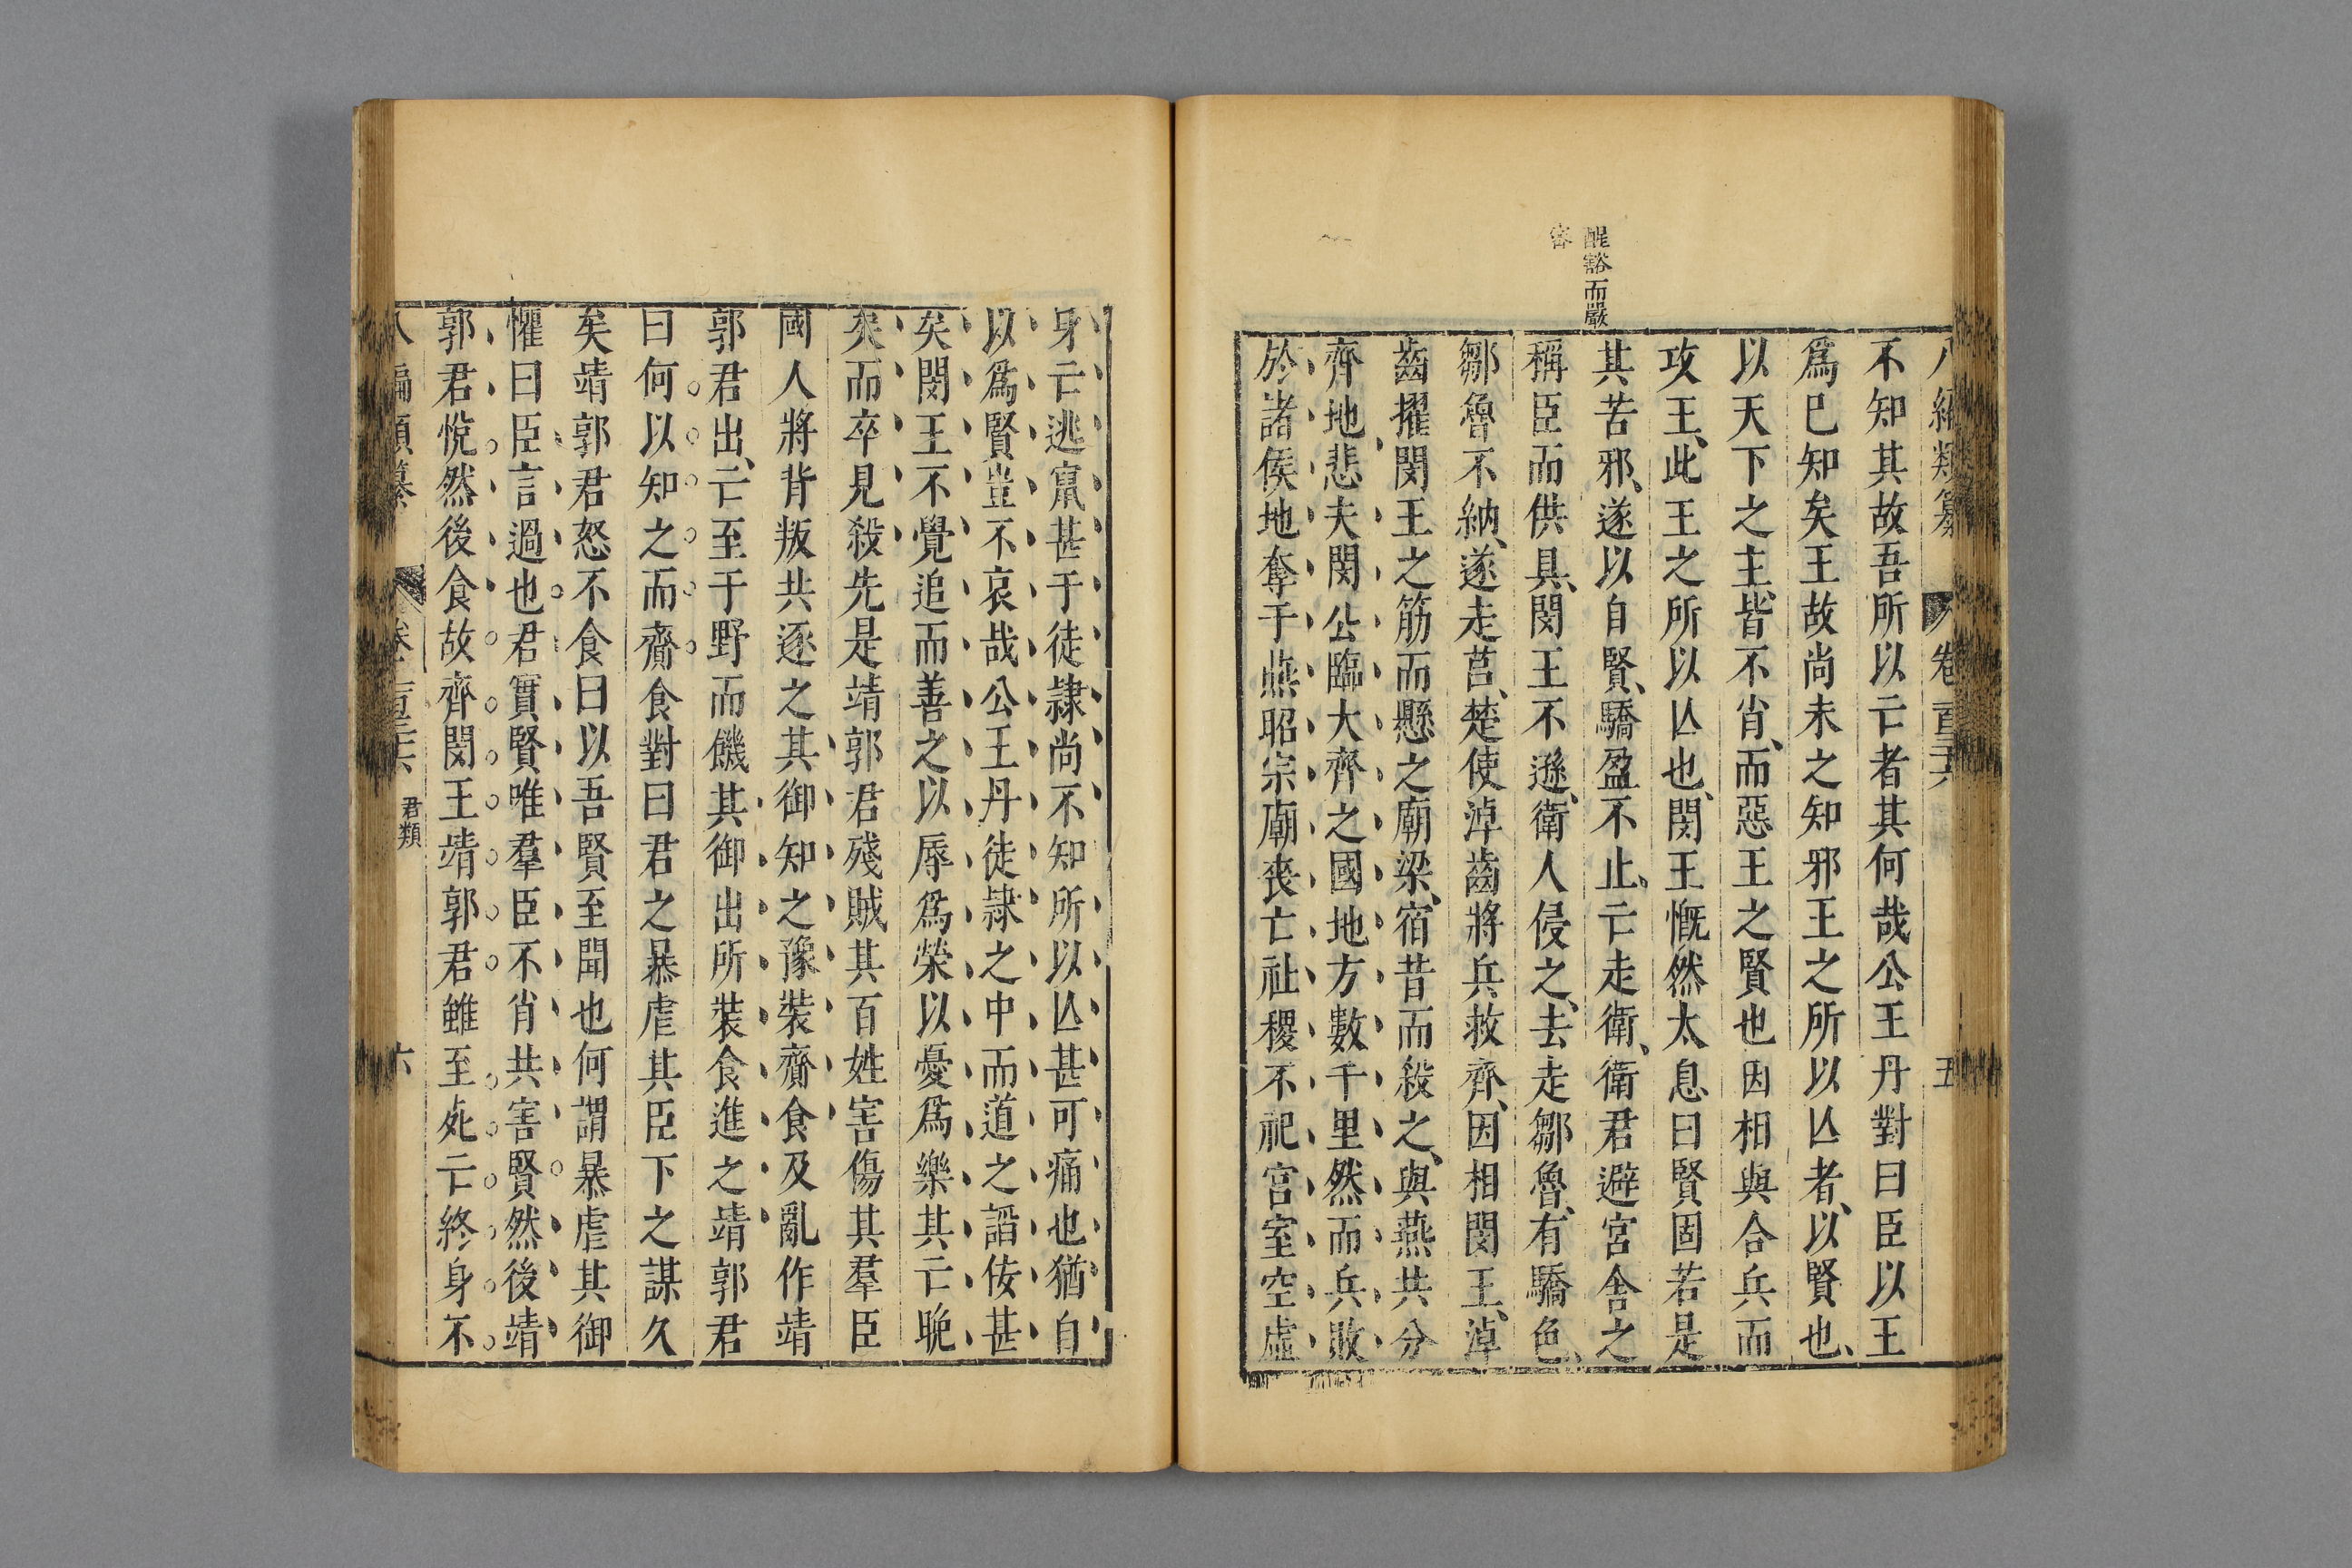 八編類纂 卷一百三十六 五
不知其故吾所以亡者其何哉公王丹對曰臣以王
爲已知矣王故尚未之知邪王之所以亾者以賢也
以天下之主皆不肖而惡王之賢也因相與合兵而
攻王此王之所以亾也閔王慨然太息曰賢固若是
其苦邪遂以自賢驕盈不止亡走衛衛君避宮舍之
稱臣而供具閔王不遜衛人侵之去走鄒魯有驕色
鄒魯不納遂走莒楚使淖齒將兵救齊因相閔王淖
齒擢閔王之筋而懸之廟梁宿昔而殺之與燕共分
齊地悲夫閔公臨大齊之國地方數千里然而兵敗
於諸侯地奪于燕昭宗廟喪亡社稷不祀宮室空虛
醒豁而嚴
密
身亡逃竄甚于徒隷尚不知所以亾甚可痛也猶自
以爲賢豈不哀哉公王丹徒隷之中而道之謟佞甚
矣閔王不覺追而善之以辱爲榮以憂爲樂其亡晚
矣而卒見殺先是靖郭君殘賊其百姓害傷其羣臣
國人將背叛共逐之其御知之豫裝齎食及亂作靖
郭君出亡至于野而饑其御出所裝食進之靖郭君
曰何以知之而齎食對曰君之暴虐其臣下之謀久
矣靖郭君怒不食曰以吾賢至聞也何謂暴虐其御
懼曰臣言過也君實賢唯羣臣不肖共害賢然後靖
郭君悅然後食故齊閔王靖郭君雖至死亡終身不
八編類纂 卷一百三十六 君類 六